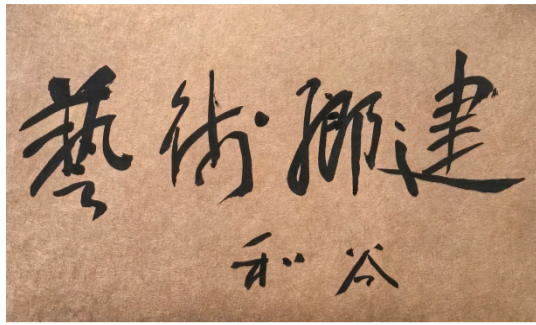 藝術鄉建
和谷